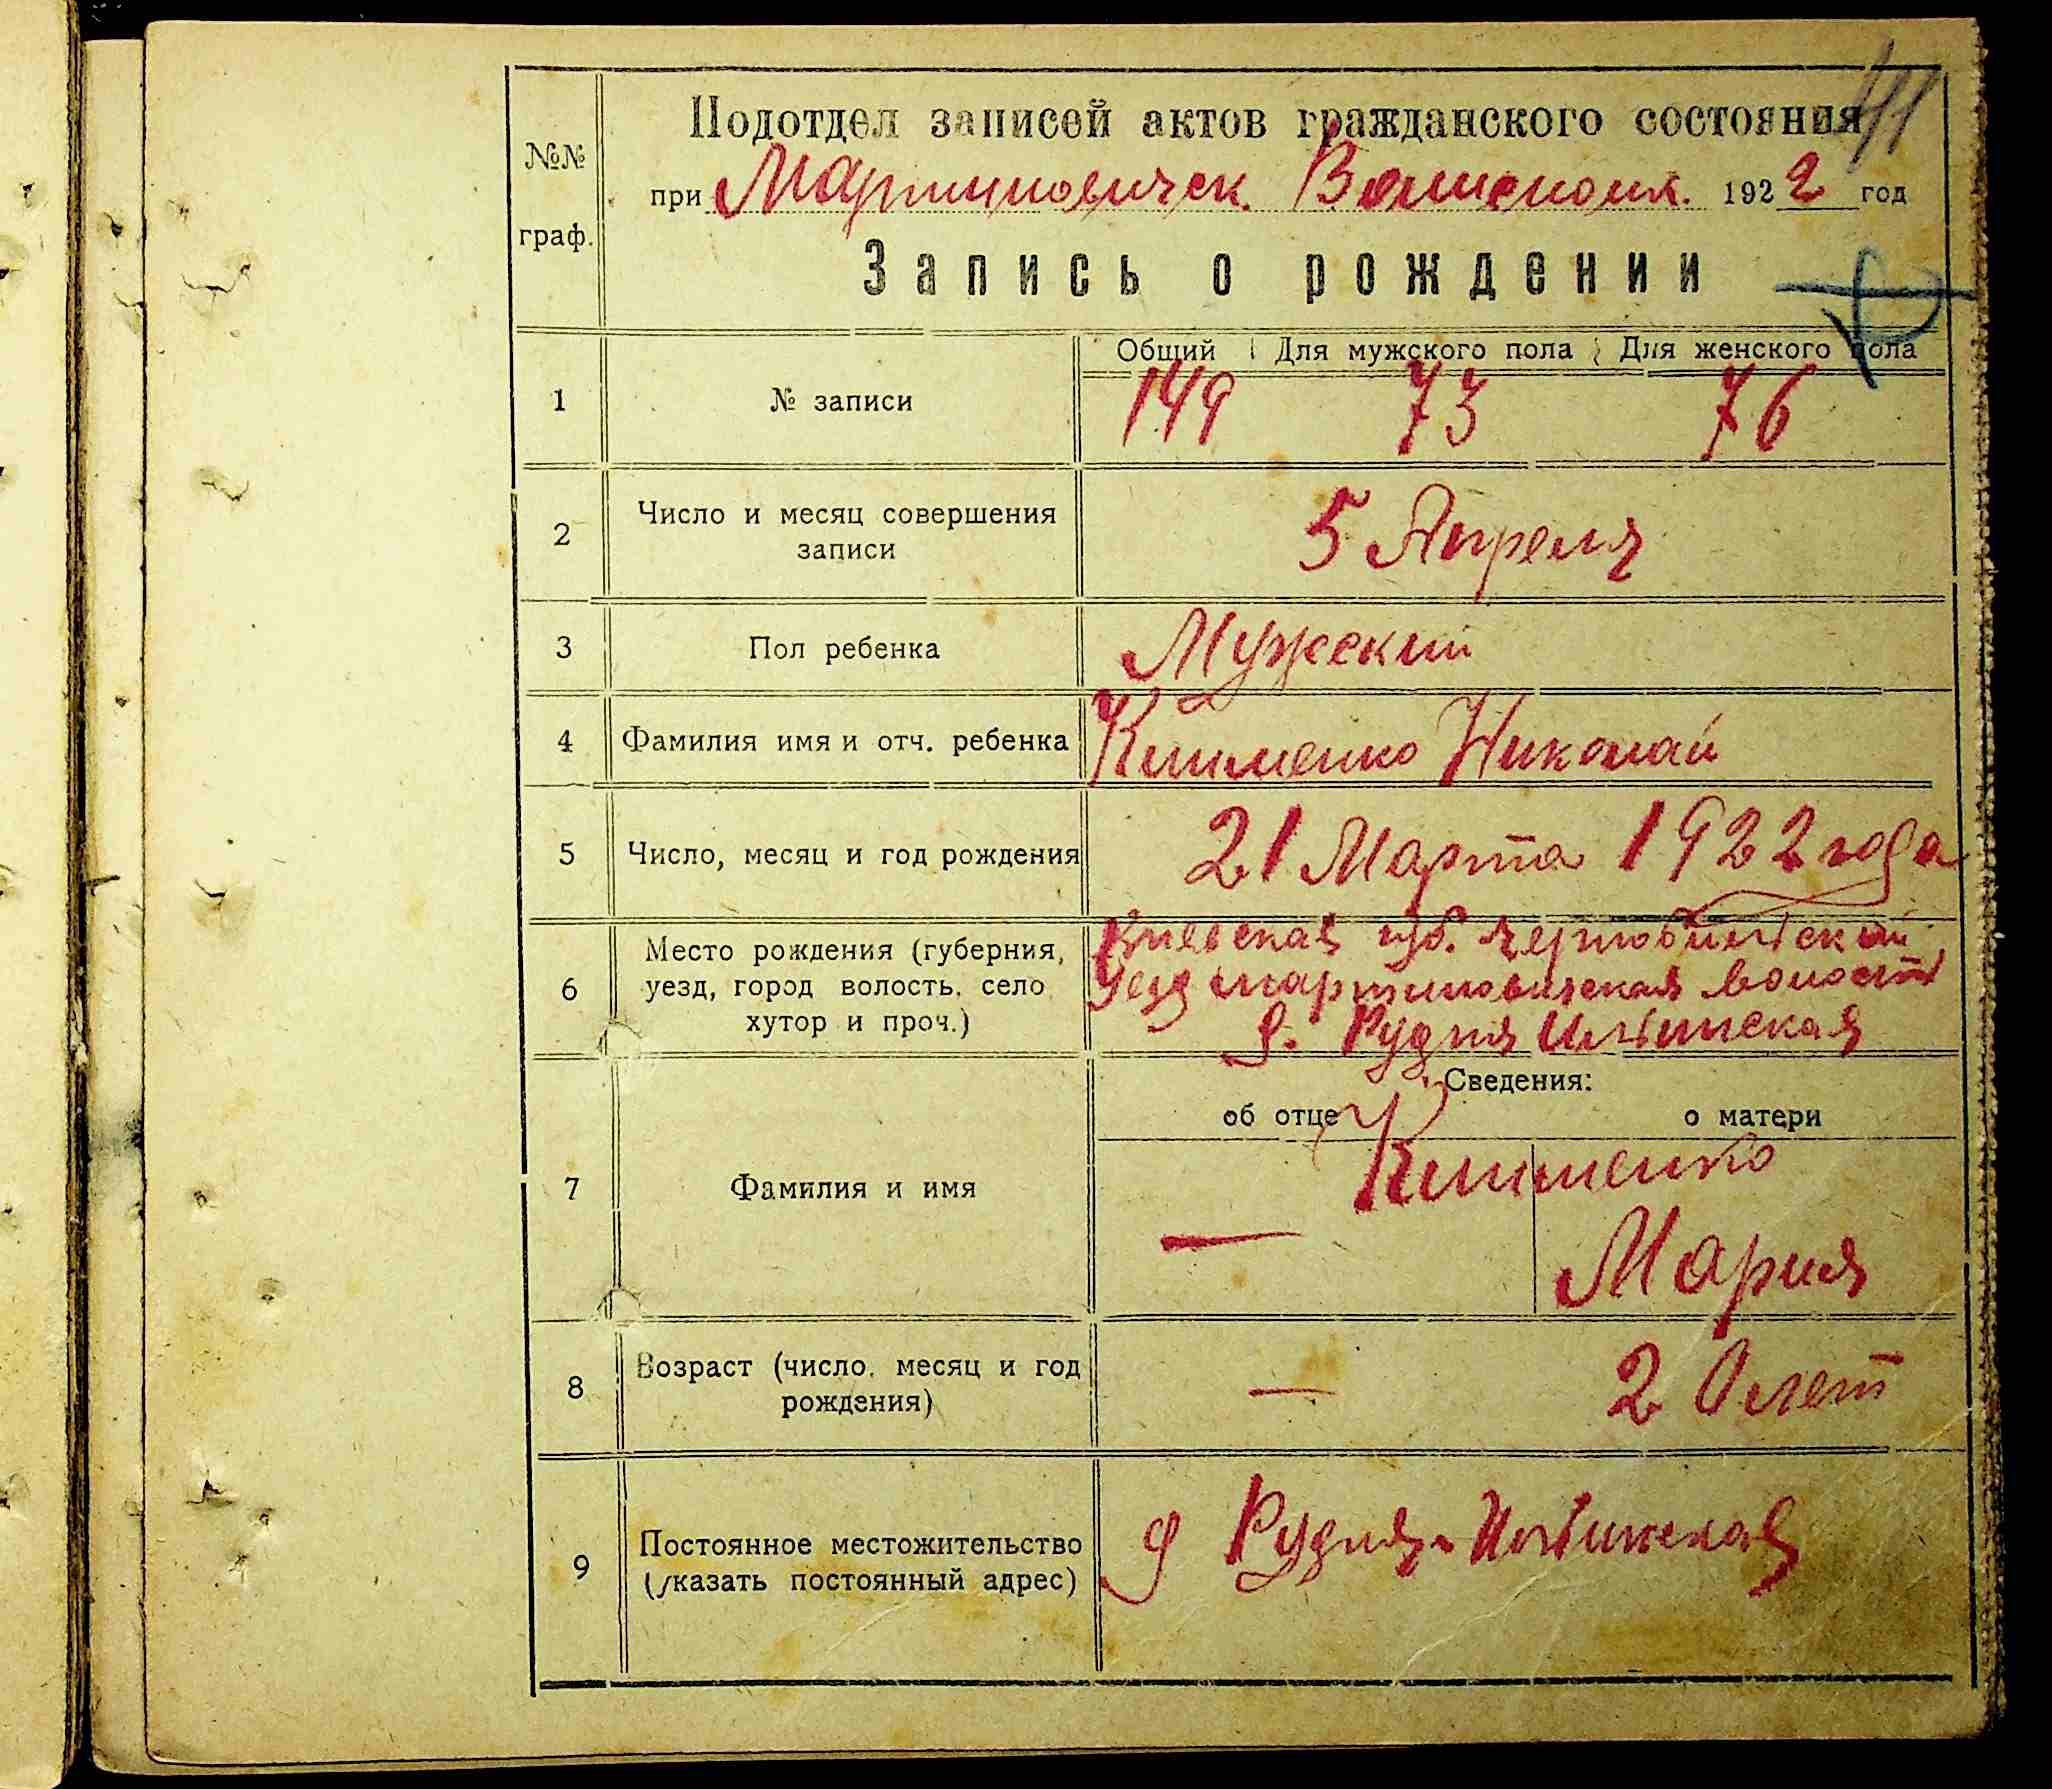 41
Подотдел записей актов гражданского состояния
№№
граф.
при Мартиновичск. Волисполк. 1922 год
Запись о рождении
Общий Для мужского пола Для женского пола
1 № записи 149 73 76
2 Число и месяц совершения
записи
5 Апреля
3 Пол ребенка Мужский
4 Фамилия имя и отч. ребенка Клименко Николай
5 Число, месяц и год рождения 21 Марта 1922 года
6 Место рождения (губерния,
уезд, город волость, село
хутор и проч.)
Киевская губ. Чернобильский
Уезд Мартиновичская волость
д. Рудня Ильинская
Сведения:
об отце о матери
7 Фамилия и имя — Клименко
Мария
8 Возраст (число, месяц и год
рождения)
— 20 лет
9 Постоянное местожительство
(указать постоянный адрес)
д Рудня-Ильинская